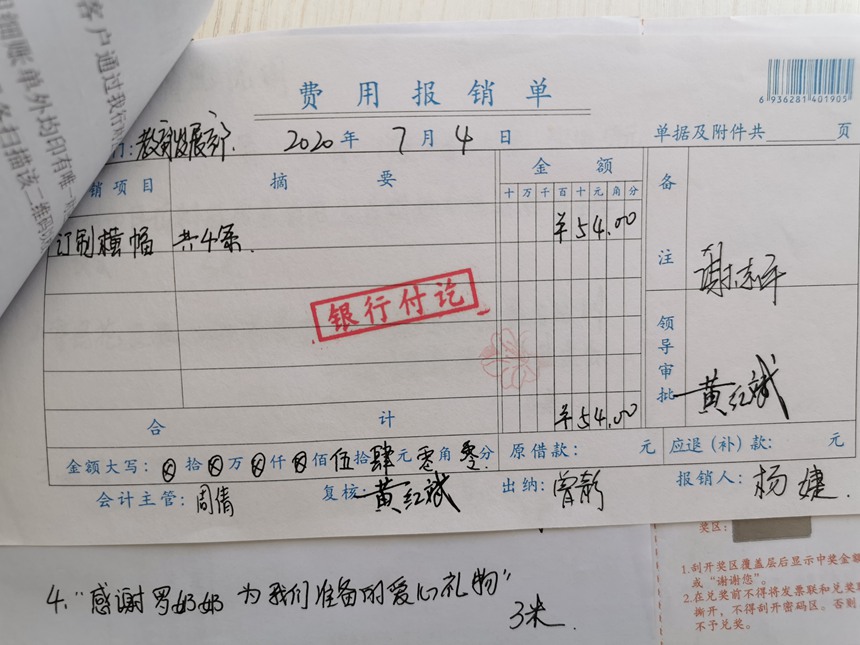 客户通过我行
细账单外均印有唯一
扫描该二维码
费用报销单
6 936281 401905
门: 教育发展部 2020年 7月 4日 单据及附件共 页
销项目 摘要 金额 备注
十万千百十元角分
订制横幅 共4条. ¥54.00
谢志平
银行付讫
领导审批 黄红斌
合计 ¥54.00
金额大写: ⊗拾⊗万⊗仟⊗佰伍拾肆元零角零分 原借款: 元 应退(补)款: 元
会计主管: 周倩 复核: 黄红斌 出纳: 曾新 报销人: 杨婕.
4. "感谢罗奶奶为我们准备的爱心礼物"
3米.
奖区:
1.刮开奖区覆盖层后显示中奖金额
或“谢谢您”。
2.在兑奖前不得将发票联和兑奖联
撕开,不得刮开密码区。否则
不予兑奖。